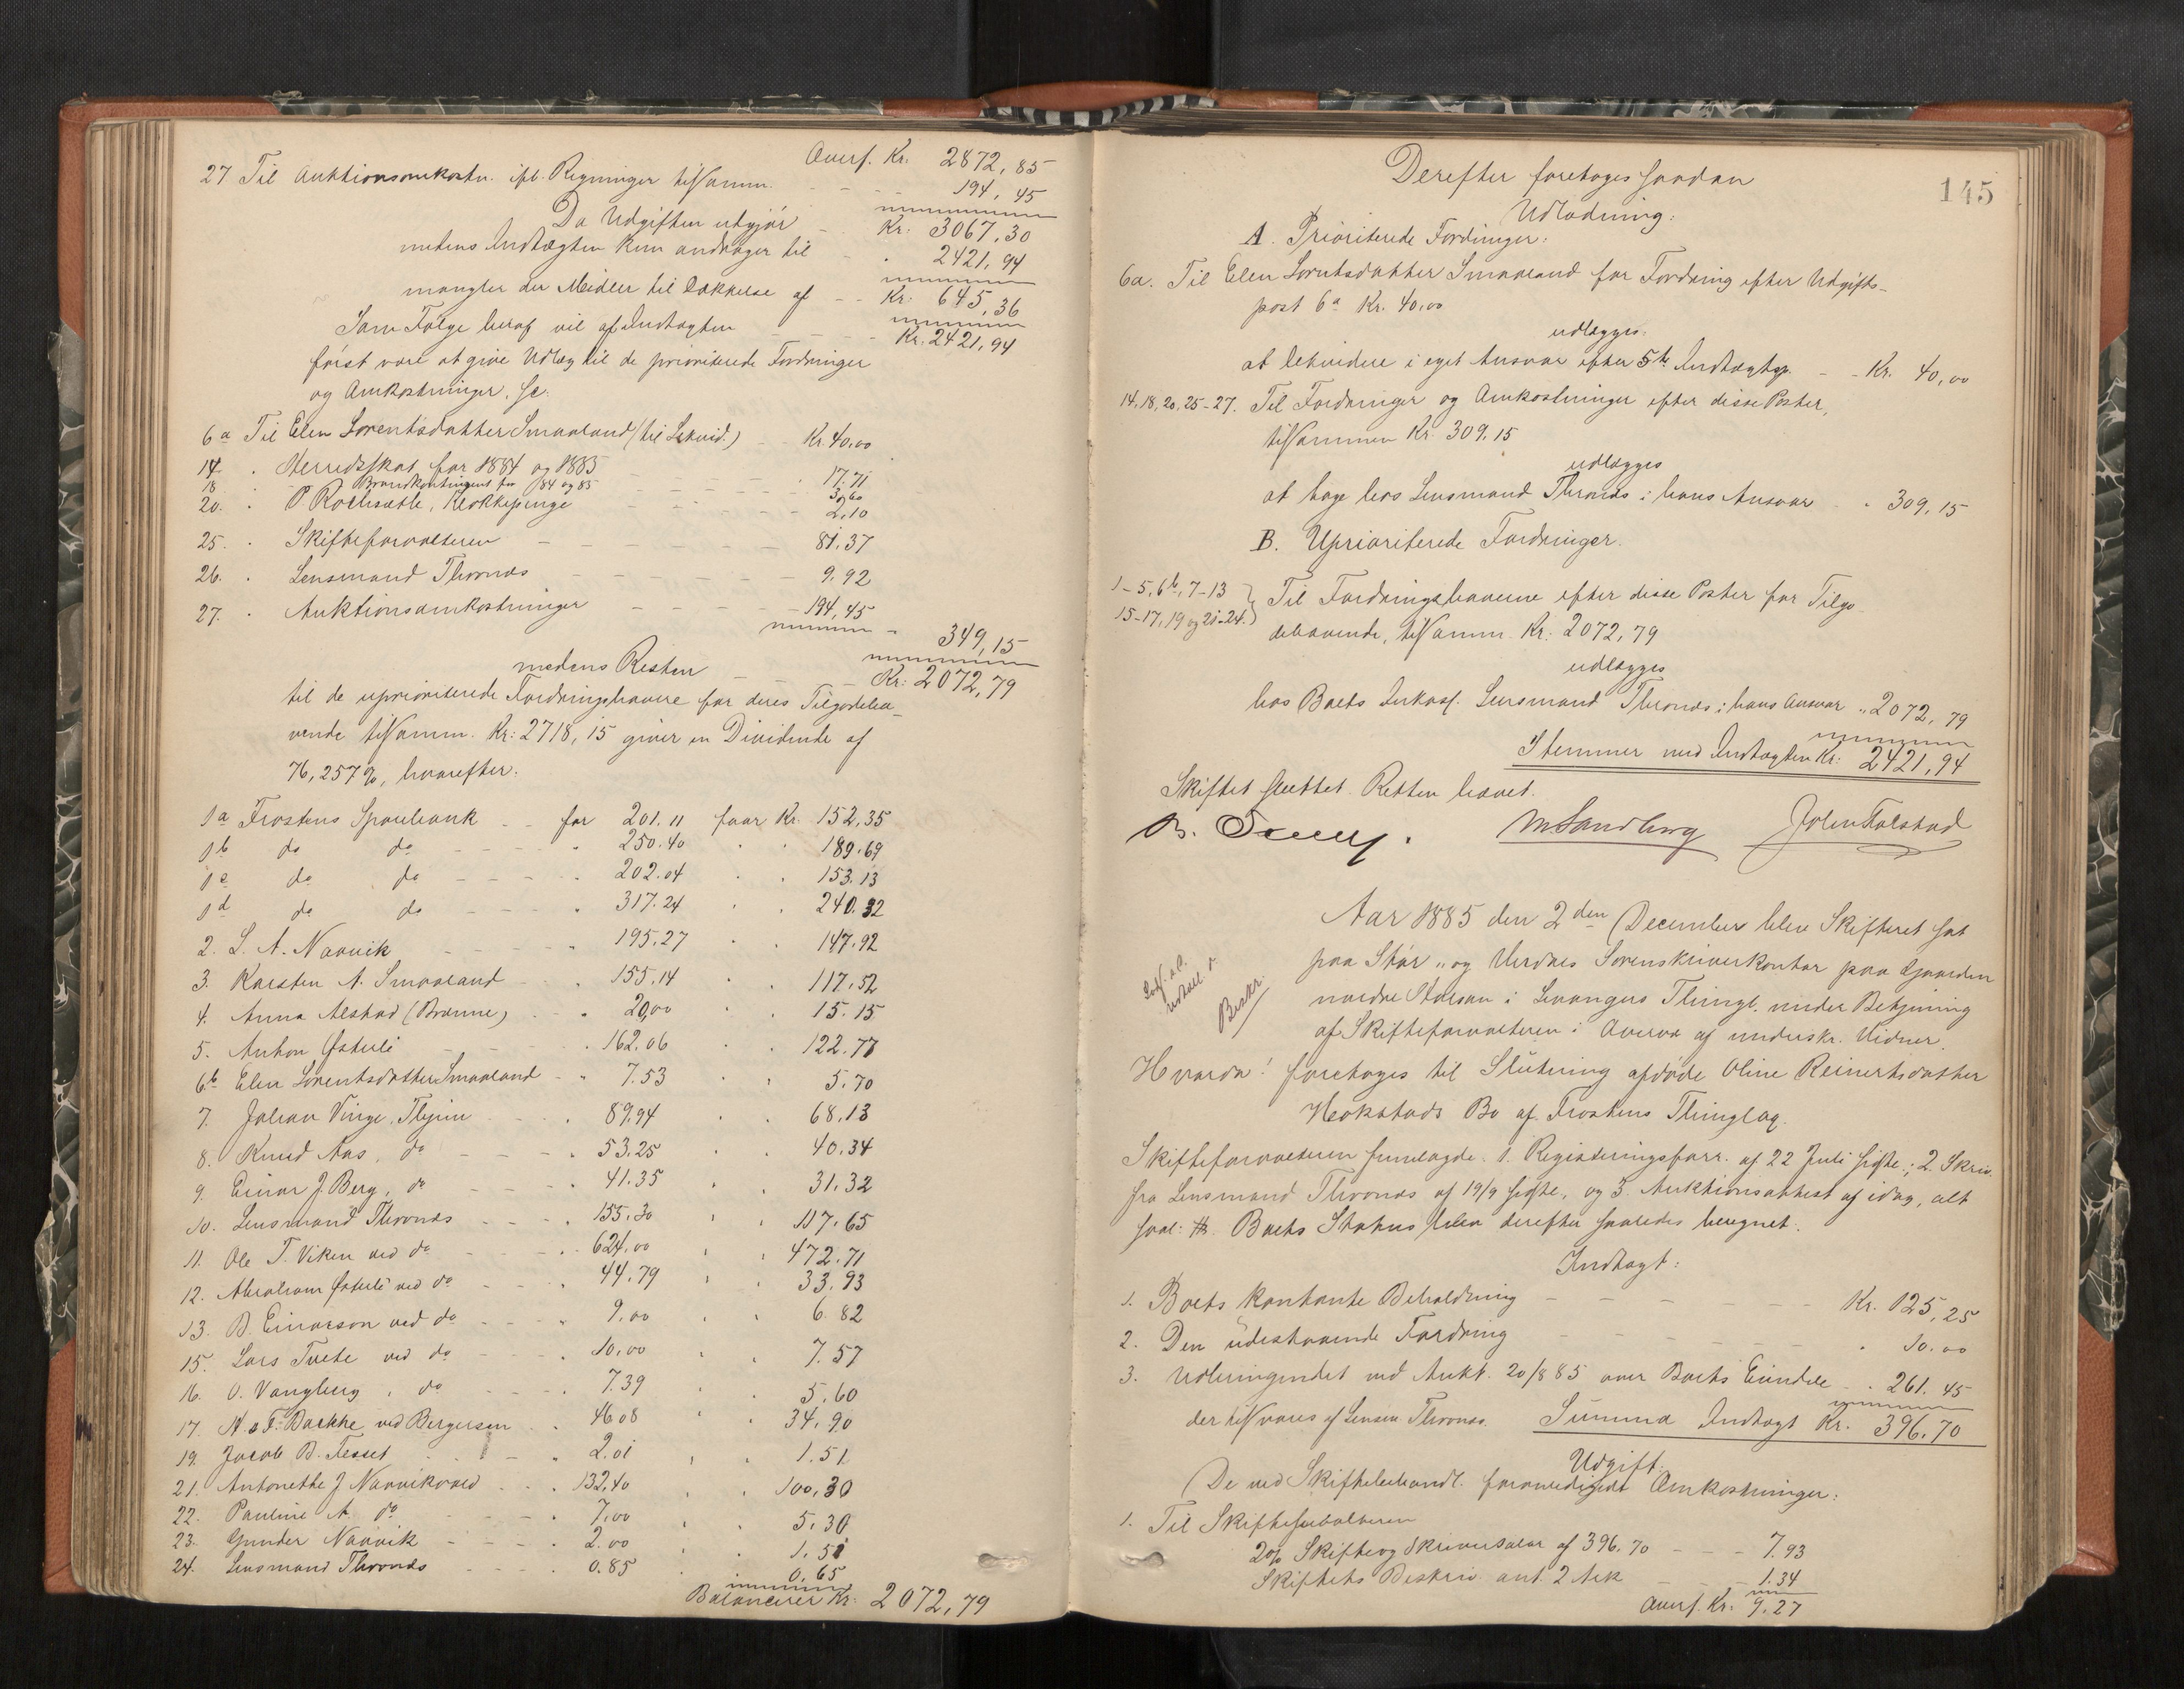 Overf. Kr. 2872,85
27 Til Auktionsomkostn. ifl. Regninger tilsamm. - - - 194,45
Da Udgiften udgjør - Kr: 3067,30
medens Indtægten kun andrager til - . 2421,94
mangler der Midler til Dækkelse af - - Kr: 645,36
Som Følge heraf vil af Indtægten - - - Kr. 2421,94
først være at give Udlæg til de prioriterede Fordringer
og Omkostninger, sc:
6a Til Elen Lorentsdatter Smaaland (til Likvid.) - - Kr. 40,00
14. . Herredsskat for 1884 og 1885 - - - . 17.71
18 . Brandkontingent for 84 og 85 - - - 3,60
20. . P Rochsæthe, Klokkepenge - - - 2,10
25. . Skifteforvalteren - - - 81,37
26. . Lensmand Thronæs - - - 9,92
27. . Auktionsomkostninger - - - 194,45
- 349,15
medens Resten - - Kr: 2072,79
til de uprioriterede Fordringshavere for deres Tilgodeha-
vende tilsamm. Kr: 2718,15 giver en Dividende af
76,257 %, hvorefter:
1a Frostens Sparebank - - for 201.11 faar Kr. 152,35
1b do do - - - . 250.40 . . 189.69
1c do do - - - . 202.04 . . 153.13
1d do do - - - . 317.24 . . 240.32
2. L. A. Naavik - - . 195.27 . . 147.92
3. Karsten A. Smaaland - . 155.14 . . 117.52
4. Anna Alstad (Brønne) - . 20,00 . . 15.15
5. Anton Østerli - - . 162.06 . . 122.77
6b Elen Lorentsdatter Smaaland - . 7.53 . . 5.70
7. Johan Vinge, Thjem . 89,94 . . 68.13
8. Knud Aas, do - - - . 53.25 . . 40.34
9. Einar J. Berg, do - - - . 41.35 . . 31.32
10. Lensmand Thronæs - - - . 155.30 . . 117.65
11. Ole T. Viken ved do - - . 624.00 . . 472.71
12. Abraham Østerli ved do - - . 44.79 . . 33.93
13. B. Einarson ved do - - - . 9.00 . . 6.82
15. Lars Tvete ved do - - . 10.00 . . 7.57
16. O. Vangberg, do - - - . 7.39 . . 5.60
17. A & F: Bakke ved Bergersen . . 46.08 . . 34.90
19. Jacob B. Fesset - - . 2.01 . . 1.51
21. Antonethe J Naavikvald . . . 132,40 . . 100,30
22. Pauline A. do - - - . 7.00 . . 5.30
23. Gunder Naavik - - - . 2.00 . . 1.51
24. Lensmand Thronæs - - . 0.85 . . 0.65
Balancerer Kr: 2072,79
145
Derefter foretoges saadan
Udlodning:
A. Prioriterede Fordringer:
6a. Til Elen Lorentsdatter Smaaland for Fordring efter Udgifts-
post 6a Kr. 40.00
udlægges:
at lekvidere i eget Ansvar efter 5te Indtægtsp. - - Kr. 40,00
14, 18, 20, 25-27. Til Fordringer og Omkostninger efter disse Poster,
tilsammen Kr. 309.15
udlægges
at tage hos Lensmand Thronæs i hans Ansvar . . 309,15
B. Uprioriterede Fordringer.
1-5, 6b, 7-13 Til Fordringshaverne efter disse Poster for Tilgo-
15-17, 19 og 21-24. dehavende, tilsamm. Kr: 2072,79
udlægges
hos Boets Inkass. Lensmand Thronæs i hans Ansvar „ 2072,79
Stemmer med Indtægten Kr: 2421,94
Skiftet sluttet. Retten hævet.
M Sandberg Johan Falstad
Aar 1885 den 2den December blev Skifteret sat
paa Stør- og Værdals Sorenskriverkontor paa Gaarden
nordre Staosan i Levangers Thingl. under Betjening
af Skifteforvalteren i Overvær af underskr. Vidner.
Beskr.
Hvorda: foretoges til Slutning afdøde Oline Reinertsdatter
Hokstads Bo af Frostens Thinglag.
Skifteforvalteren fremlagde 1. Registreringsforr. af 22 Juli sidste; 2. Skriv.
fra Lensmand Thronæs af 19/9 sidstl., og 3. Auktionsattest af idag, alt
saal: Boets Status blev derefter saaledes beregnet:
Indtægt:
1. Boets kontante Beholdning - - - Kr. 125,25
2. Den udestaaende Fordring - - - . 10.00
3. Udbringendet ved Aukt. 20/8 85 over Boets Eiendele - . 261.45
der tilsvares af Lensm. Thronæs. Summa Indtægt Kr. 396.70
Udgift:
De ved Skiftebehandl. foranledigede Omkostninger:
1. Til Skifteforvalteren
2% Skifte og Skriversalær af 396.70 - - - 7.93
Skiftets Beskriv. ant. 2 Ark - - - 1.34
Overf. Kr: 9.27